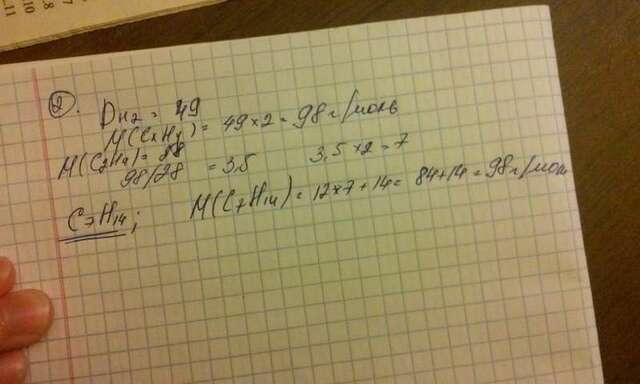 11
10
.8
7
2.
D H2 = 49
M(CxHy) = 49×2 = 98 г/моль
M(C2H4) = 28
98/28 = 3,5 3,5×2 = 7
C7H14; M(C7H14) = 12×7+14 = 84+14 = 98 г/моль